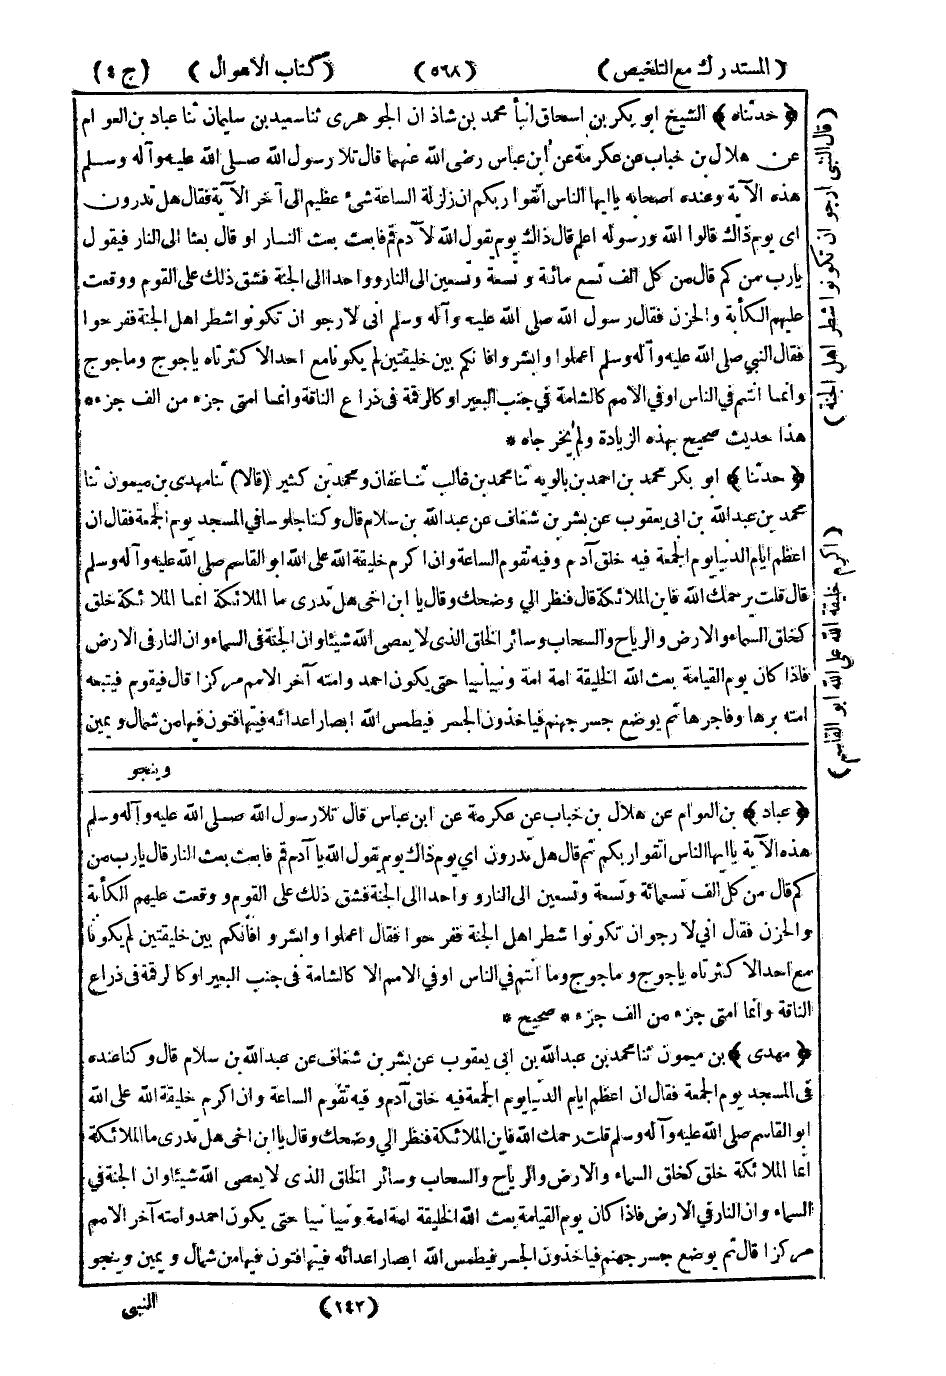 (المستدرك مع التلخيص) (٥٦٨) (كتاب الاهوال) (ج ٤)
﴿ حدثناه ﴾ الشيخ ابو بكر بن اسحاق انبأ محمد بن شاذان الجوهرى ثنا سعيد بن سليمان ثنا عباد بن العوام
عن هلال بن خباب عن عكرمة عن ابن عباس رضى الله عنهما قال تلا رسول الله صلى الله عليه وآله وسلم
هذه الآية وعنده اصحابه يا ايها الناس اتقوا ربكم ان زلزلة الساعة شىء عظيم الى آخر الآية فقال هل تدرون
اى يوم ذاك قالوا الله ورسوله اعلم قال ذاك يوم يقول الله لآدم قم فابعث بعث النار او قال بعثا الى النار فيقول
يارب من كم قال من كل الف تسع مائة و تسعة وتسعين الى النار وواحدا الى الجنة فشق ذلك على القوم ووقعت
عليهم الكأبة والحزن فقال رسول الله صلى الله عليه وآله وسلم انى لارجو ان تكونوا شطر اهل الجنة ففرحوا
فقال النبي صلى الله عليه وآله وسلم اعملوا وابشروا فانكم بين خليقتين لم يكونا مع احد الا كثرتاه ياجوج وماجوج
وانما انتم في الناس او في الامم كالشامة في جنب البعير او كالرقمة فى ذراع الناقة وانما امتى جزء من الف جزء *
هذا حديث صحيح بهذه الزيادة ولم يخرجاه *
﴿ حدثنا ﴾ ابو بكر محمد بن احمد بن بالويه ثنا محمد بن غالب ثنا عفان ومحمد بن كثير (قالا) ثنا مهدى بن ميمون ثنا
محمد بن عبد الله بن ابى يعقوب عن بشر بن شغاف عن عبد الله بن سلام قال وكنا جلوسا في المسجد يوم الجمعة فقال ان
اعظم ايام الدنيا يوم الجمعة فيه خلق آدم وفيه تقوم الساعة وان اكرم خليقة الله على الله ابو القاسم صلى الله عليه وآله وسلم
قال قلت يرحمك الله فاين الملائكة قال فنظر الي وضحك وقال يا ابن اخى هل تدرى ما الملائكة انما الملائكة خلق
كخلق السماء والارض والرياح والسحاب وسائر الخلق الذى لا يعصى الله شيئا وان الجنة فى السماء وان النار فى الارض
فاذا كان يوم القيامة بعث الله الخليقة امة امة ونبيا نبيا حتى يكون احمد وامته آخر الامم مركزا قال فيقوم فيتبعه
امته برها وفاجرها ثم يوضع جسر جهنم فياخذون الجسر فيطمس الله ابصار اعدائه فيتهافتون فيها من شمال ويمين
وينجو
﴿ عباد ﴾ بن العوام عن هلال بن خباب عن عكرمة عن ابن عباس قال تلا رسول الله صلى الله عليه وآله وسلم
هذه الآية يا ايها الناس اتقوا ربكم ثم قال هل تدرون اي يوم ذاك يوم يقول الله يا آدم قم فابعث بعث النار قال يارب من
كم قال من كل الف تسعمائة وتسعة وتسعين الى النار و واحدا الى الجنة فشق ذلك على القوم و وقعت عليهم الكأبة
والحزن فقال اني لا رجو ان تكونوا شطر اهل الجنة ففرحوا فقال اعملوا وابشروا فانكم بين خليقتين لم يكونا
مع احد الا كثرتاه ياجوج و ماجوج وما انتم في الناس او في الامم الا كالشامة فى جنب البعير او كالرقمة فى ذراع
الناقة وانما امتى جزء من الف جزء * صحيح *
﴿ مهدى ﴾ بن ميمون ثنا محمد بن عبد الله بن ابى يعقوب عن بشر بن شغاف عن عبد الله بن سلام قال وكنا عنده
فى المسجد يوم الجمعة فقال ان اعظم ايام الدنيا يوم الجمعة فيه خلق آدم و فيه تقوم الساعة وان اكرم خليقة الله على الله
ابو القاسم صلى الله عليه وآله وسلم قلت رحمك الله فاين الملائكة فنظر الي وضحك وقال يا ابن اخى هل تدرى ما الملائكة
انما الملائكة خلق كخلق السماء والارض والرياح والسحاب وسائر الخلق الذى لا يعصى الله شيئا وان الجنة في
السماء وان النار في الارض فاذا كان يوم القيامة بعث الله الخليقة امة امة ونبيا نبيا حتى يكون احمد وامته آخر الامم
مركزا قال ثم يوضع جسر جهنم فياخذون الجسر فيطمس الله ابصار اعدائه فيتهافتون فيها من شمال و يمين وينجو
(١٤٢) النبى
(قال النبى ارجو ان تكونوا شطر اهل الجنة)
(اكرم خليقة الله على الله ابو القاسم)